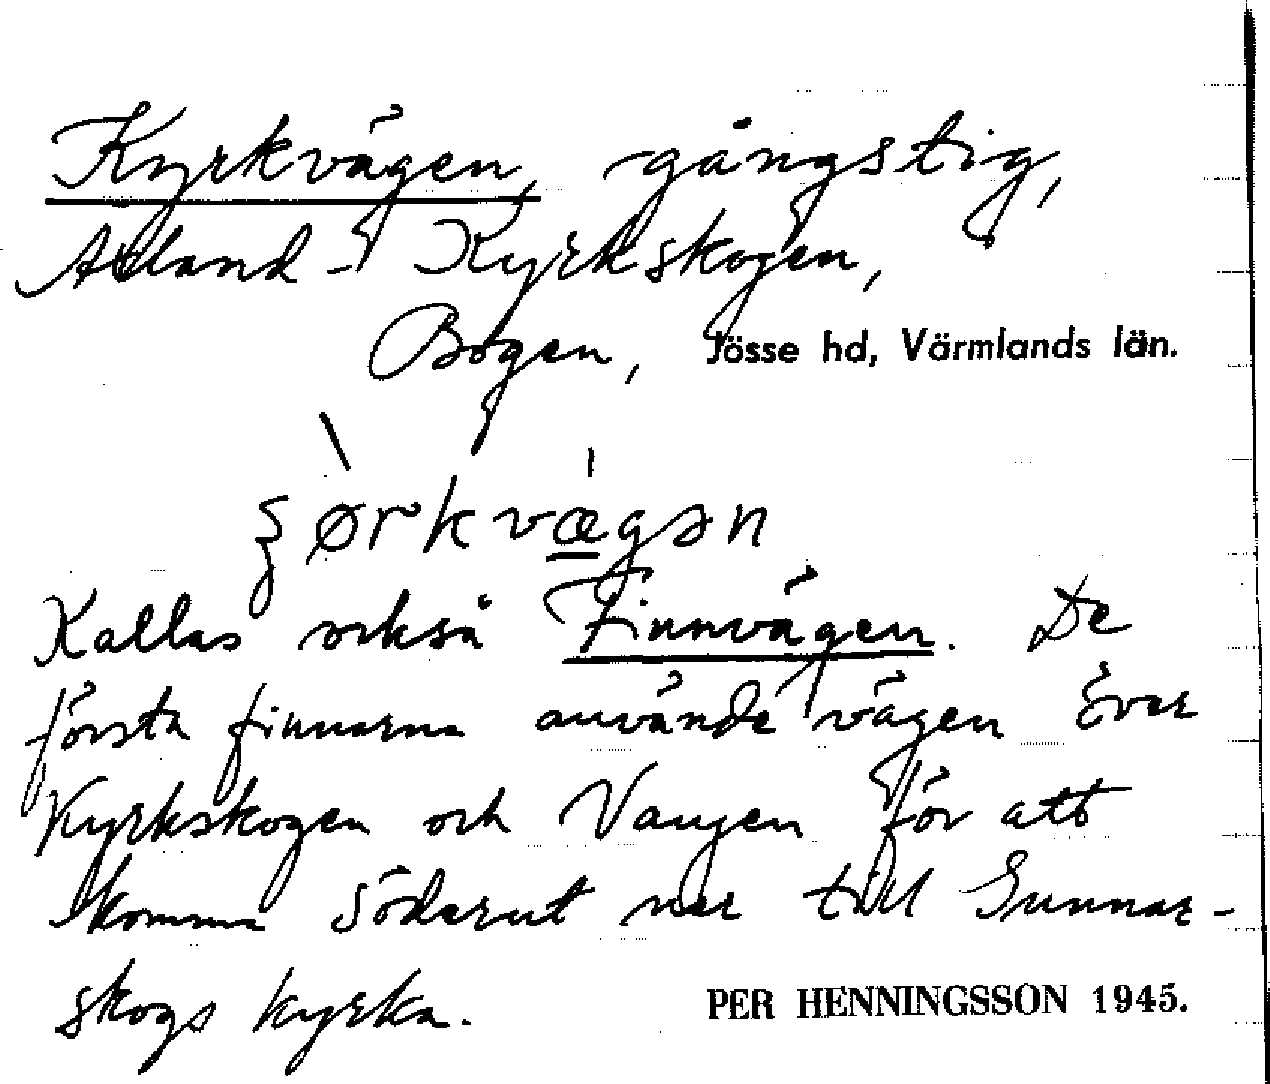 Kyrkvägen, gångstig,
- Kyrkskogen,
Bogen, Jösse hd, Värmlands län.
ørkvægən
Kallas också Finnvägen. De
första finnarna använde vägen över
Kyrkskogen och Vangen för att
komma söderut ner till Gunnar-
skogs kyrka.
PER HENNINGSSON 1945.